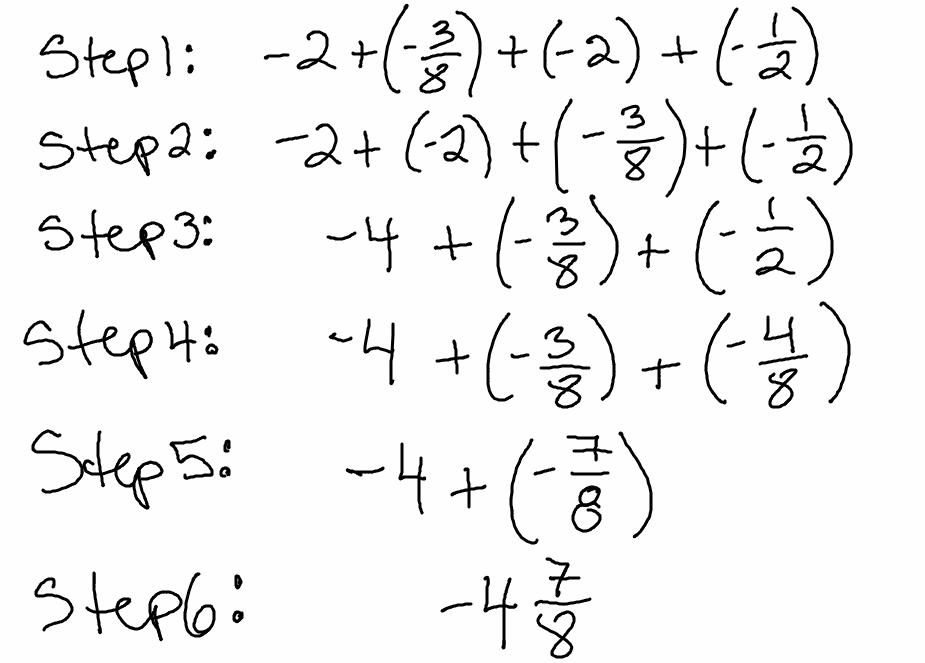 Step 1: -2 + (-3/8) + (-2) + (-1/2)
Step 2: -2 + (-2) + (-3/8) + (-1/2)
Step 3: -4 + (-3/8) + (-1/2)
Step 4: -4 + (-3/8) + (-4/8)
Step 5: -4 + (-7/8)
Step 6: -4 7/8